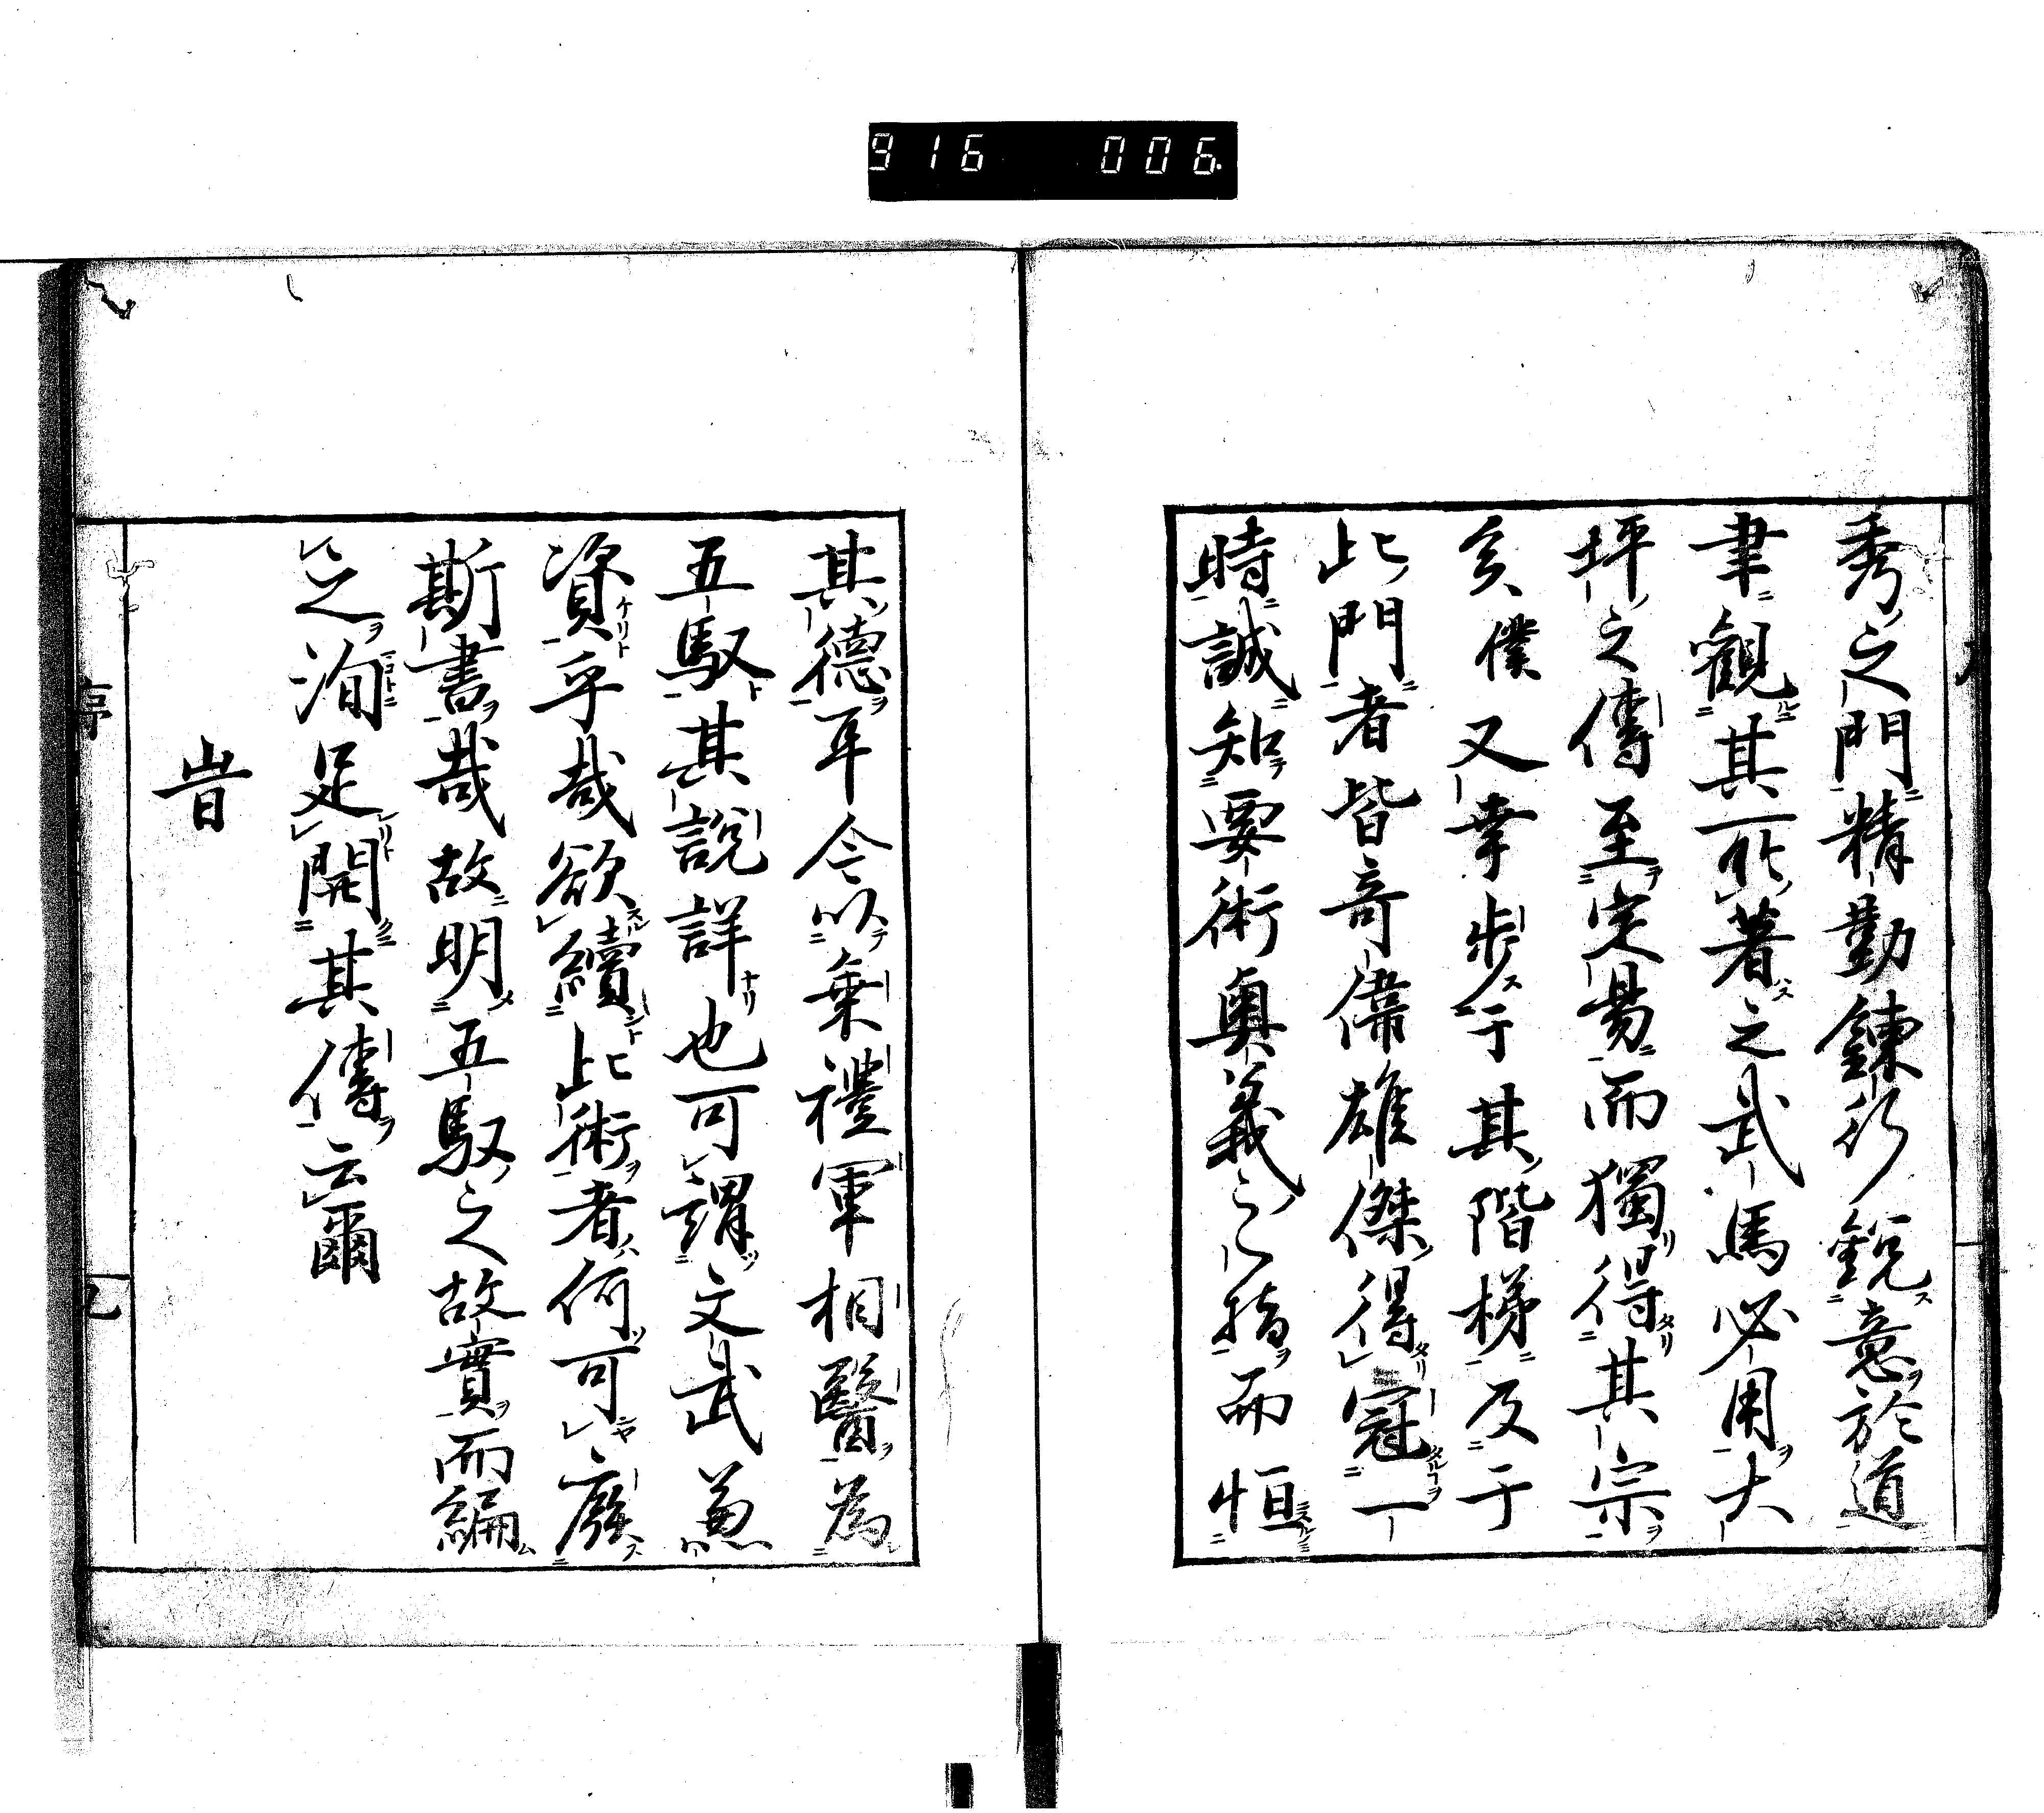 916 006
秀之門精勤錬行鋭意於道
聿觀其所著之武馬必用大
坪之傳至定易而獨得其宗
矣僕又幸步于其階梯及于
此門者皆奇偉雄傑得冠一
時誠知要術奥義之指而恒
其德耳今以乗禮軍相醫為
五馭其說詳也可謂文武兼
資乎哉欲續此術者何可廢
斯書哉故明五馭之故實而編
之洵足開其傳云爾
旹